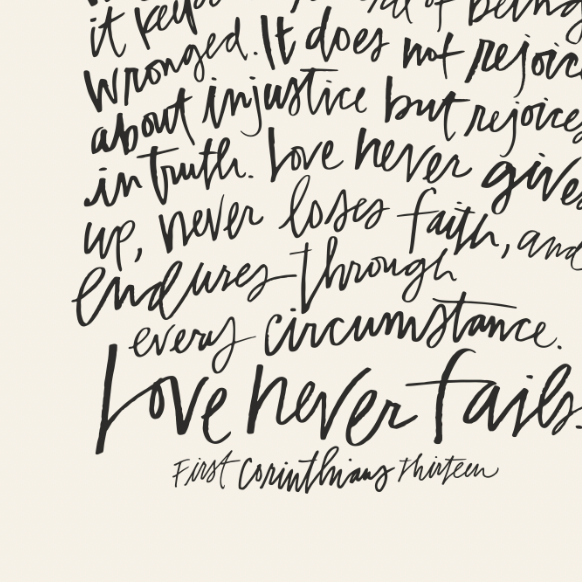 it keeps of being
wronged. It does not rejoic
about injustice but rejoices
in truth. Love never gives
up, never loses faith, and
endures through
every circumstance.
Love never fails.
First Corinthians Thirteen